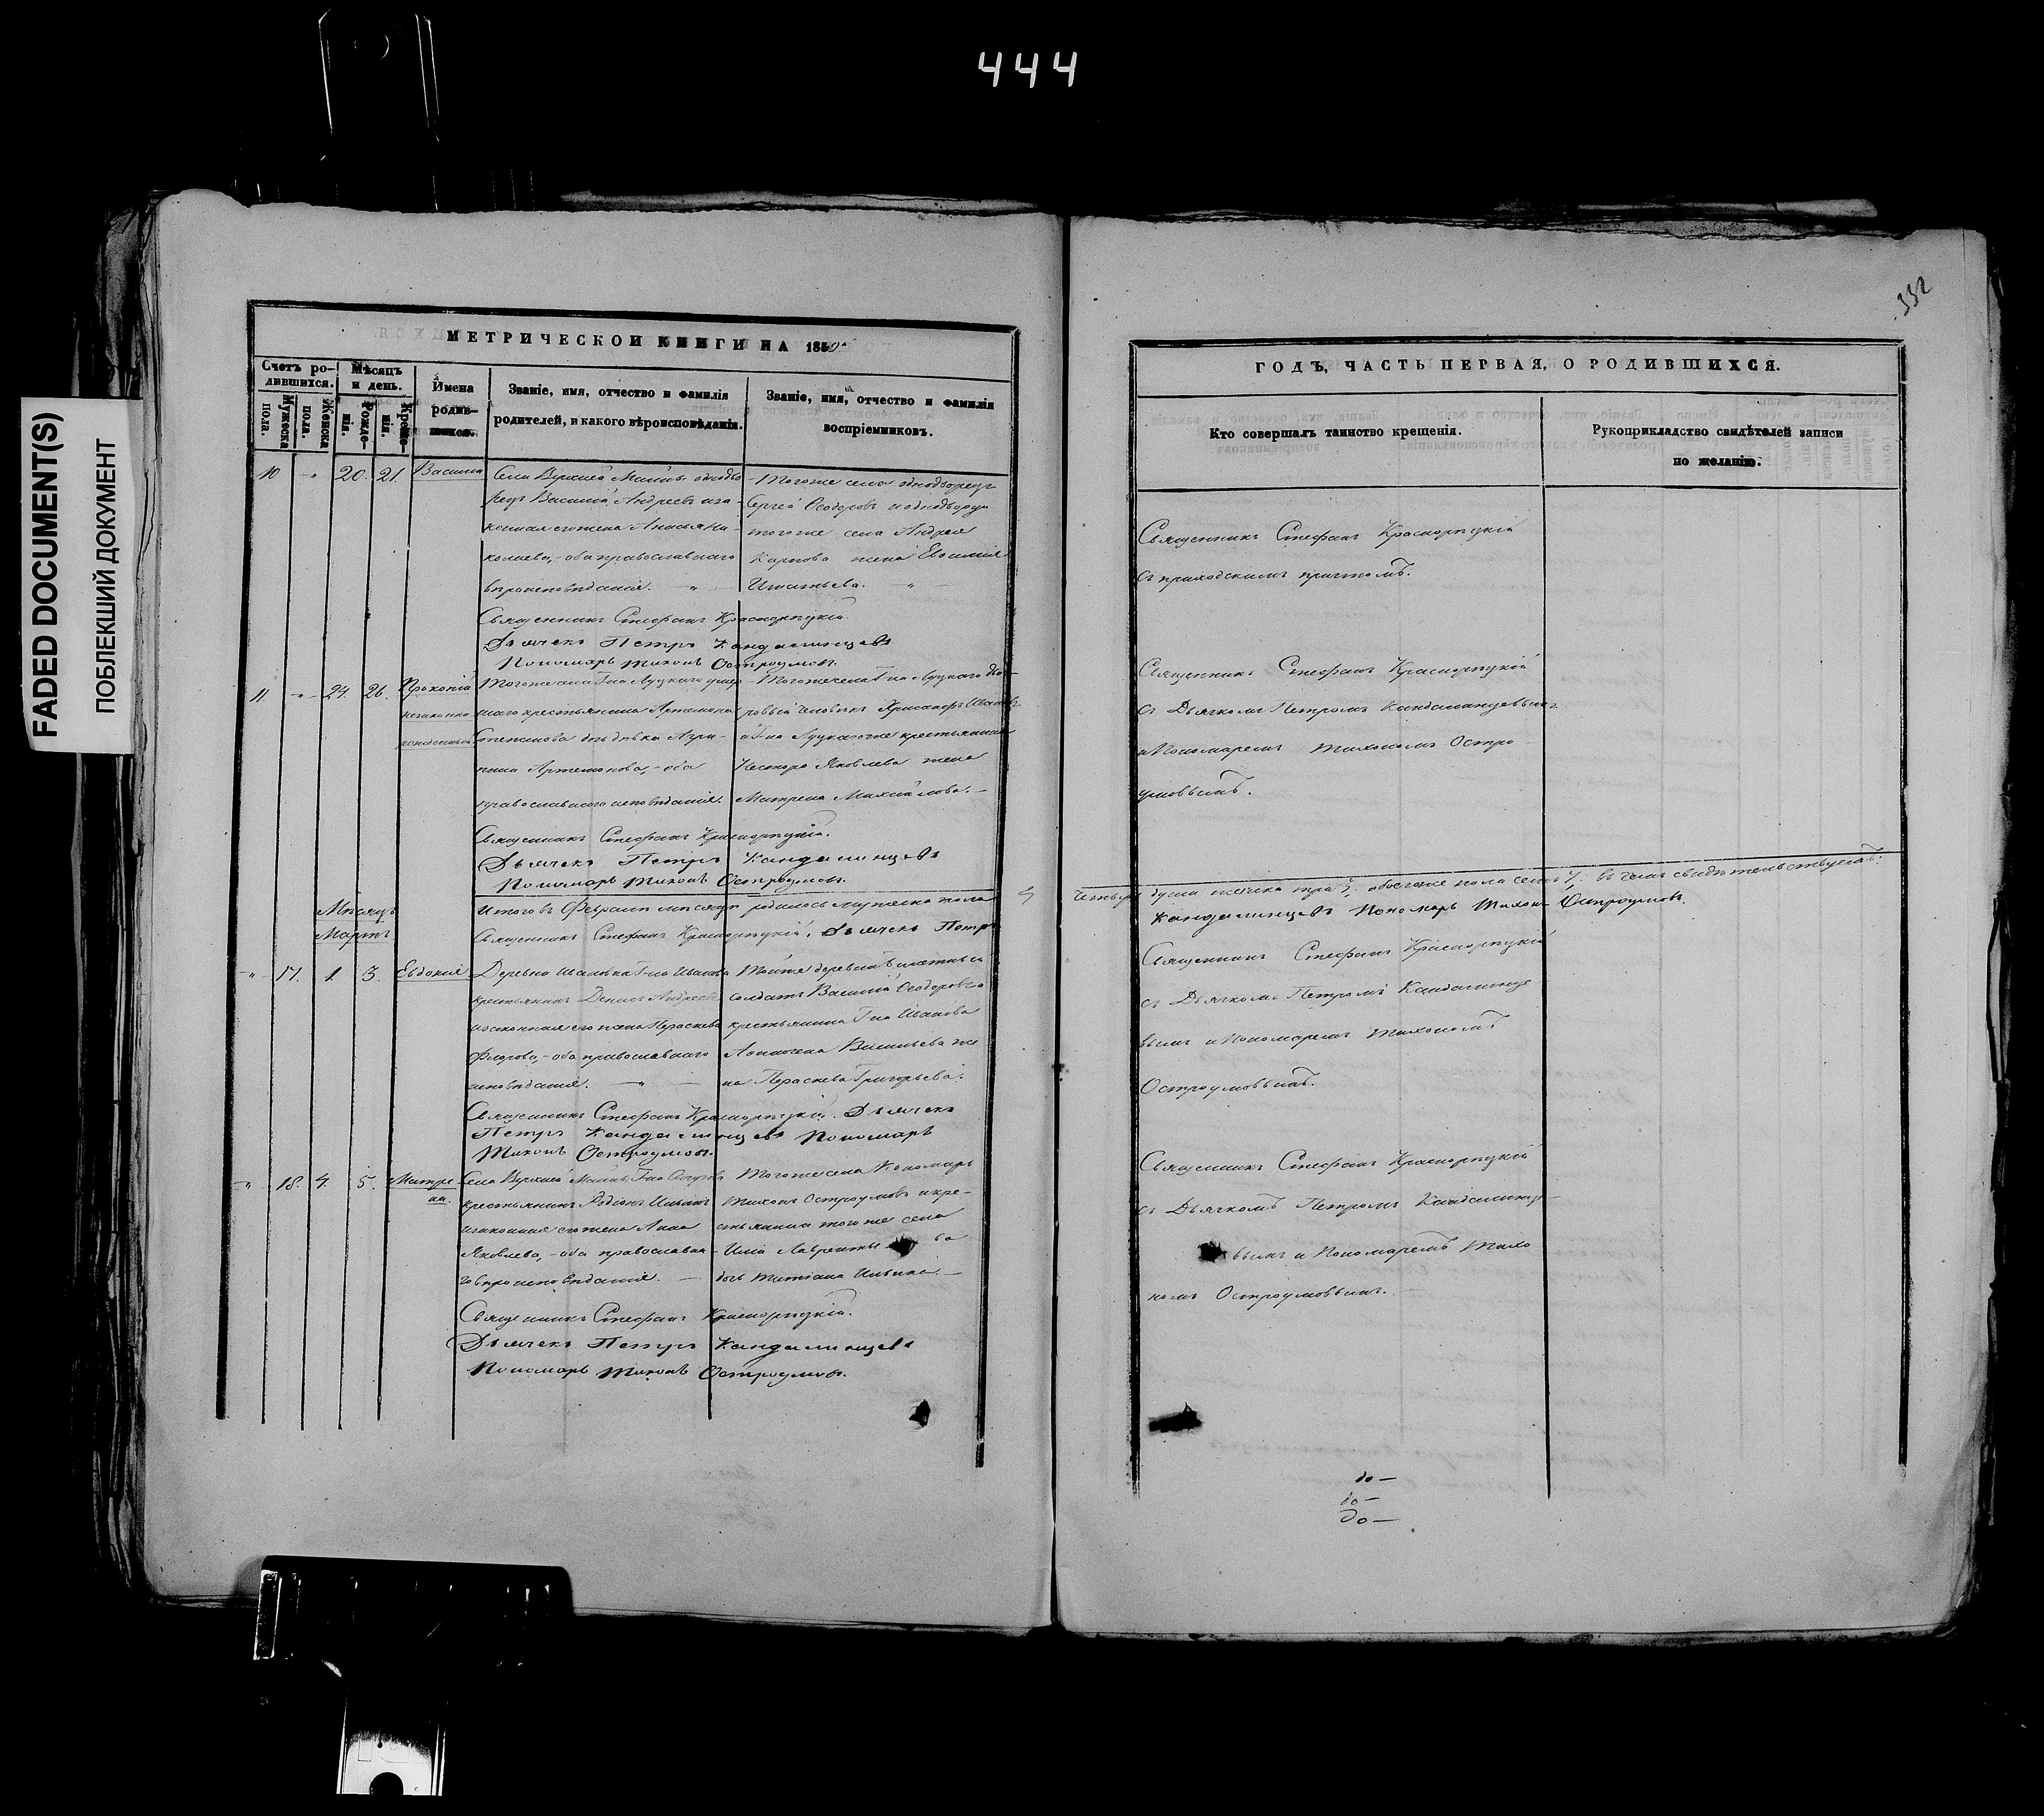 444
332
FADED DOCUMENT(S)
ПОБЛЕКШИЙ ДОКУМЕНТ
МЕТРИЧЕСКОЙ КНИГИ НА 1850
Счетъ родившихся.
Мужеска пола.
Женска пола.
Мѣсяцъ и день.
Рожденія.
Крещенія.
Имена родившихся.
Званіе, имя, отчество и фамилія
родителей, и какого вѣроисповѣданія.
Званіе, имя, отчество и фамилія
воспріемниковъ.
10 " 20. 21. Василій
Села Верхней однодво
рецъ Василій Андреевъ и за
конная его жена Анисья Ни
колаева, - оба православнаго
вѣроисповѣданія. "
Тогоже села однодворецъ
Сергѣй Ѳеодоровъ и однодворца
тогоже села Андрея
Карпова жена Евфимія
Игнатьева. "
Священникъ Стефанъ Краснорѣцкій.
Дьячекъ Петръ Кандалинцевъ
Пономарь Тихонъ Остроумовъ.
11. " 24. 26. Прокопій
незаконно
рожденный
Тогоже села Г-на Луцкаго умер
шаго крестьянина Артамона
Степанова дочь дѣвка Агри
пина Артамонова, - оба
православнаго исповѣданія.
Тогоже села Г-на Луцкаго
ровый человѣкъ Ивановъ
и Г-на Луцкаго же крестьянина
Нестора Яковлева жена
Матрена Михайлова. -
Священникъ Стефанъ Краснорѣцкій.
Дьячекъ Петръ Кандалинцевъ
Пономарь Тихонъ Остроумовъ.
Мѣсяцъ
Мартъ
Итого въ Февралѣ мѣсяцѣ родилось мужеска пола 4
Священникъ Стефанъ Краснорѣцкій. Дьячекъ Петръ
" 17. 1. 3. Евдокія
Деревни Ивановка Г-на Иванова
крестьянинъ Денисъ Андреевъ
и законная его жена Параскева
Фдорова, - оба православнаго
исповѣданія. - " -
Тойже деревни
солдатъ Василій Ѳеодоровъ и
крестьянина Г-на Иванова
Васильева же
на Параскева Григорьева.
Священникъ Стефанъ Краснорѣцкій. Дьячекъ
Петръ Кандалинцевъ Пономарь
Тихонъ Остроумовъ.
" 18. 4. 5. Матре
на.
Села Верхней Г-на
крестьянинъ Родіонъ
и законная его жена Анна
Яковлева, - оба православна
го вѣроисповѣданія. -
Тогоже села Пономарь
Тихонъ Остроумовъ и кре
стьянина тогоже села
Ильи ва
дочь Татіана Ильина. -
Священникъ Стефанъ Краснорѣцкій.
Дьячекъ Петръ Кандалинцевъ
Пономарь Тихонъ Остроумовъ.
ГОДЪ, ЧАСТЬ ПЕРВАЯ, О РОДИВШИХСЯ.
Кто совершалъ таинство крещенія.
Рукоприкладство свидѣтелей записи
по желанію.
Священникъ Стефанъ Краснорѣцкій
съ приходскимъ причтомъ.
Священникъ Стефанъ Краснорѣцкій
съ Дьячкомъ Петромъ Кандалинцевымъ
и Пономаремъ Тихономъ Остро
умовымъ.
четыре души женска три 3. обоегоже пола семь 7. въ чемъ свидѣтельствуемъ:
Кандалинцевъ Пономарь Тихонъ Остроумовъ.
Священникъ Стефанъ Краснорѣцкій
съ Дьячкомъ Петромъ Кандалинце
вымъ и Пономаремъ Тихономъ
Остроумовымъ.
Священникъ Стефанъ Краснорѣцкій
съ Дьячкомъ Петромъ Кандалинце
вымъ и Пономаремъ Тихо
номъ Остроумовымъ. -
до -
до -
до -